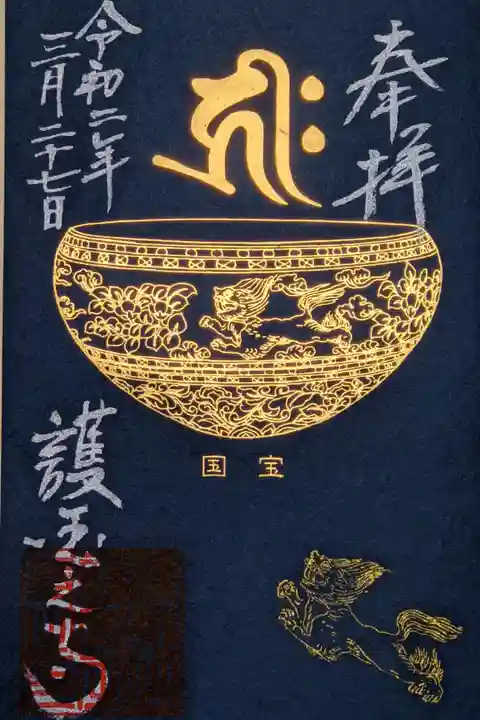 奉拝
𑖮𑖿𑖨𑖱𑖾
令和二年
三月二十七日
国宝
護国之寺